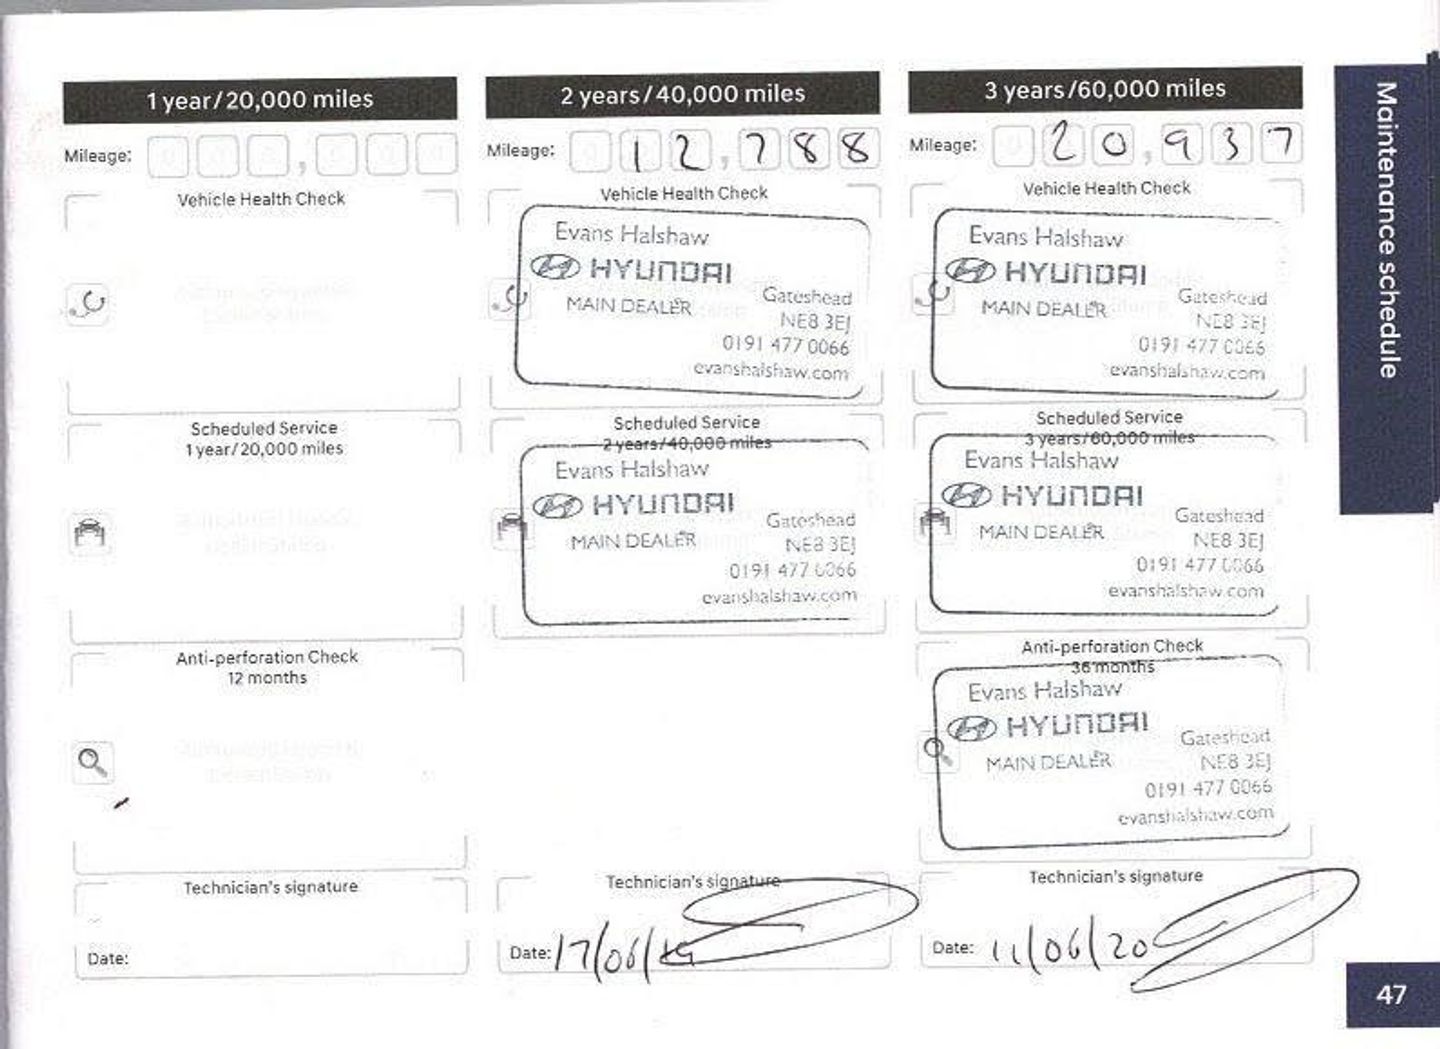 1 year/20,000 miles
Mileage:
Vehicle Health Check
Scheduled Service
1 year/20,000 miles
Anti-perforation Check
12 months
Technician's signature
Date:
2 years/40,000 miles
Mileage: 12,788
Vehicle Health Check
Evans Halshaw
HYUNDAI
MAIN DEALER
Gateshead
NE8 3EJ
0191 477 0066
evanshalshaw.com
Scheduled Service
2 years/40,000 miles
Evans Halshaw
HYUNDAI
MAIN DEALER
Gateshead
NE8 3EJ
0191 477 0066
evanshalshaw.com
Technician's signature
Date: 17/06/19
3 years/60,000 miles
Mileage: 20,937
Vehicle Health Check
Evans Halshaw
HYUNDAI
MAIN DEALER
Gateshead
NE8 3EJ
0191 477 0066
evanshalshaw.com
Scheduled Service
3 years/60,000 miles
Evans Halshaw
HYUNDAI
MAIN DEALER
Gateshead
NE8 3EJ
0191 477 0066
evanshalshaw.com
Anti-perforation Check
36 months
Evans Halshaw
HYUNDAI
MAIN DEALER
Gateshead
NE8 3EJ
0191 477 0066
evanshalshaw.com
Technician's signature
Date: 11/06/20
Maintenance schedule
47